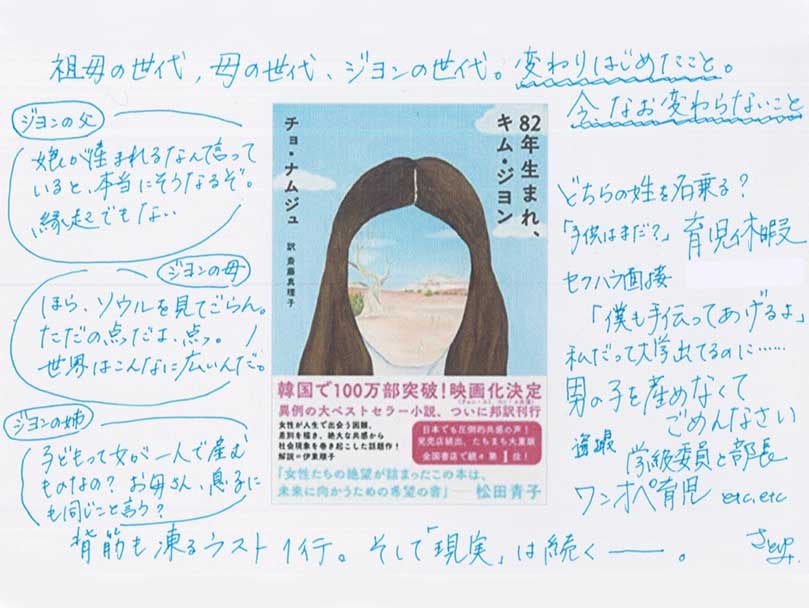 祖母の世代、母の世代、ジヨンの世代。変わりはじめたこと。
今、なお変わらないこと
ジヨンの父
娘が産まれるなんて言って
いると、本当にそうなるぞ。
縁起でもない
ジヨンの母
ほら、ソウルを見てごらん。
ただの点だよ、点っ。
世界はこんなに広いんだ。
ジヨンの姉
子どもって女が一人で産む
ものなの？お母さん、息子に
も同じこと言う？
82年生まれ、
キム・ジヨン
チョ・ナムジュ
訳 斎藤真理子
韓国で100万部突破！映画化決定
異例の大ベストセラー小説、ついに邦訳刊行
女性が人生で出会う困難、
差別を描き、絶大な共感から
社会現象を巻き起こした話題作！
解説＝伊東順子
日本でも圧倒的共感の声！
完売店続出、たちまち大重版
全国書店で続々第1位！
「女性たちの絶望が詰まったこの本は、
未来に向かうための希望の書」──松田青子
どちらの姓を名乗る？
「子供はまだ？」 育児休暇
セクハラ面接
「僕も手伝ってあげるよ」
私だって大学出てるのに……
男の子を産めなくて
ごめんなさい
学級委員と部長
ワンオペ育児 etc,etc
背筋も凍るラスト1行。そして「現実」は続く──。